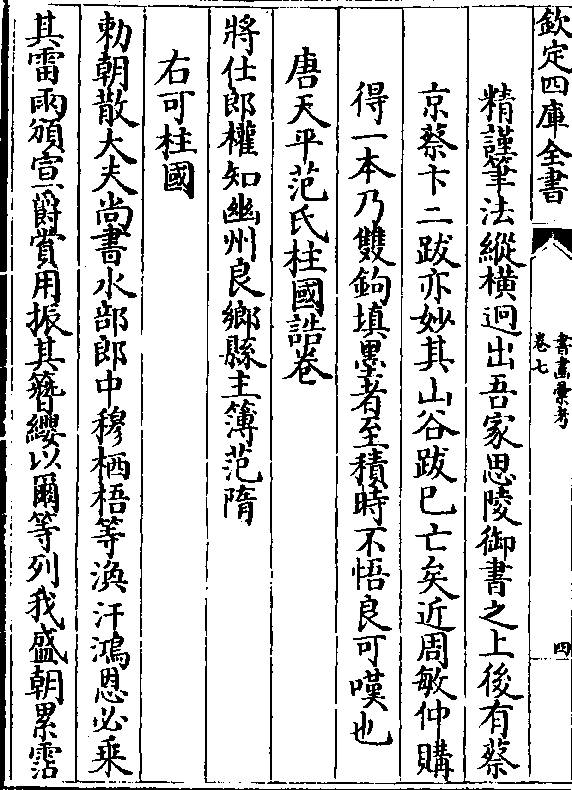 欽定四庫全書
書畫彙考
卷七
四
精謹筆法縱橫迥出吾家思陵御書之上後有蔡
京蔡卞二跋亦妙其山谷跋巳亡矣近周敏仲購
得一本乃雙鉤填墨者至積時不悟良可嘆也
唐天平范氏柱國誥卷
將仕郎權知幽州良鄉縣主簿范隋
右可柱國
勅朝散大夫尚書水部郎中穆栖梧等渙汗鴻恩必乗
其雷雨頒宣爵賞用振其簪纓以爾等列我盛朝累霑